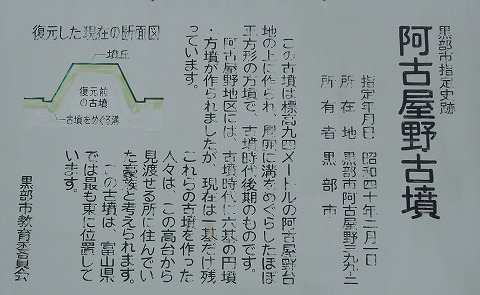 黒部市指定史跡
阿古屋野古墳
指定年月日 昭和四十年二月一日
所在地 黒部市阿古屋野三九ノ二
所有者 黒部市
この古墳は標高九四メートルの阿古屋野台
地の上に作られ、周囲に溝をめぐらしたほぼ
正方形の方墳で、古墳時代後期のものです。
阿古屋野地区には、古墳時代に六基の円墳
・方墳が作られましたが、現在は一基だけ残
っています。
これらの古墳を作った
人々は、この高台から
見渡せる所に住んでい
た豪族と考えられます。
この古墳は、富山県
では最も東に位置して
います。
黒部市教育委員会
復元した現在の断面図
墳丘
復元前
の古墳
古墳をめぐる溝